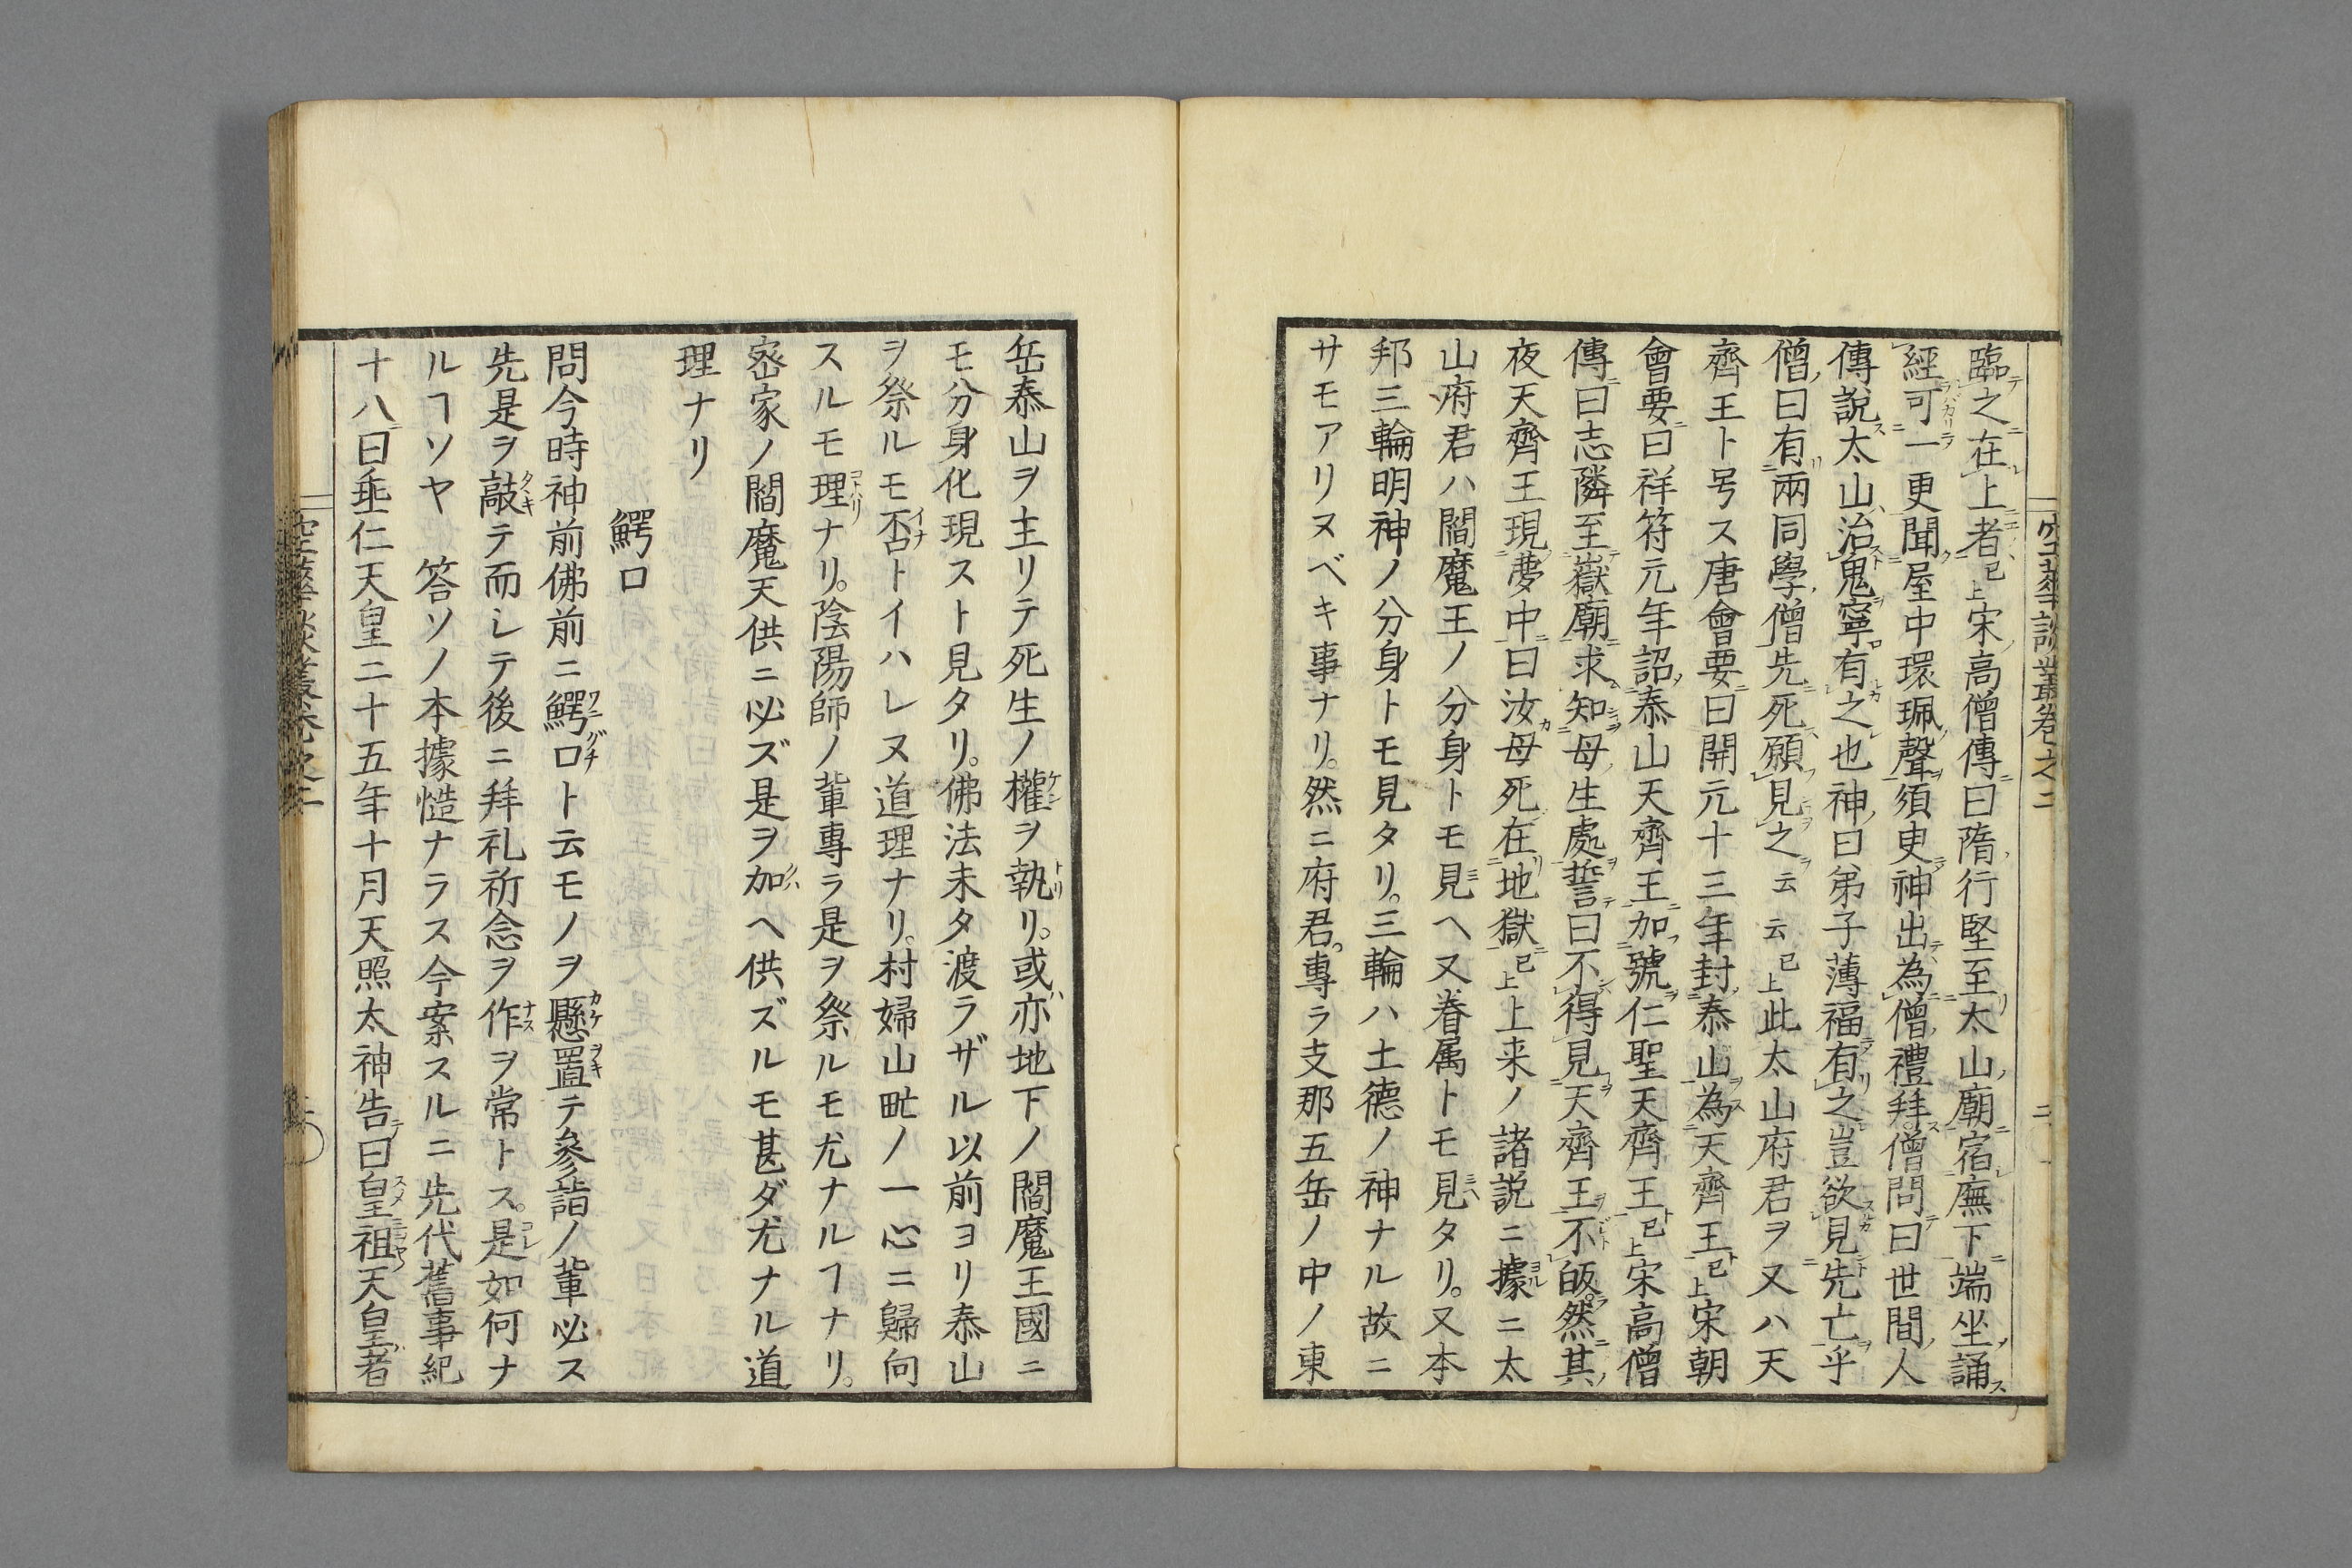 空華談叢卷之二
臨之在上者已上宋高僧傳曰隋行堅至太山廟宿廡下端坐誦
經可一更聞屋中環珮聲須臾神出為僧禮拜僧問曰世間人
傳說太山治鬼寧有之也神曰弟子薄福有之豈欲見先亡乎
僧曰有兩同學僧先死願見之云云已上此太山府君ヲ又ハ天
齊王ト号ス唐會要曰開元十三年封泰山為天齊王已上宋朝
會要曰祥符元年詔泰山天齊王加號仁聖天齊王已上宋高僧
傳曰志隣至嶽廟求知母生處誓曰不得見天齊王不皈然其
夜天齊王現夢中曰汝母死在地獄已上上来ノ諸説ニ據ニ太
山府君ハ閻魔王ノ分身トモ見ヘ又眷属トモ見タリ。又本
邦三輪明神ノ分身トモ見タリ。三輪ハ土德ノ神ナル故ニ
サモアリヌベキ事ナリ。然ニ府君。專ラ支那五岳ノ中ノ東
岳泰山ヲ主リテ死生ノ權ヲ執リ。或亦地下ノ閻魔王國ニ
モ分身化現スト見タリ。佛法未タ渡ラザル以前ヨリ泰山
ヲ祭ルモ否トイハレヌ道理ナリ。村婦山甿ノ一心ニ歸向
スルモ理ナリ。陰陽師ノ輩專ラ是ヲ祭ルモ尤ナルヿナリ。
宻家ノ閻魔天供ニ必ズ是ヲ加ヘ供ズルモ甚ダ尤ナル道
理ナリ
鰐口
問今時神前佛前ニ鰐口ト云モノヲ懸置テ參詣ノ輩必ス
先是ヲ敲テ而シテ後ニ拜礼祈念ヲ作ヲ常トス。是如何ナ
ルヿソヤ　答ソノ本據慥ナラス今案スルニ先代舊事紀
十八曰垂仁天皇二十五年十月天照太神告曰皇祖天皇者